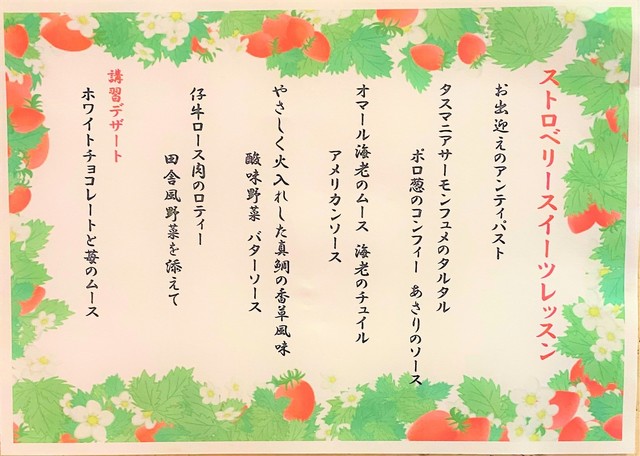 ストロベリースイーツレッスン
お出迎えのアンティパスト
タスマニアサーモンフュメのタルタル
ポロ葱のコンフィー あさりのソース
オマール海老のムース 海老のチュイル
アメリカンソース
やさしく火入れした真鯛の香草風味
酸味野菜 バターソース
仔牛ロース肉のロティー
田舎風野菜を添えて
講習デザート
ホワイトチョコレートと苺のムース